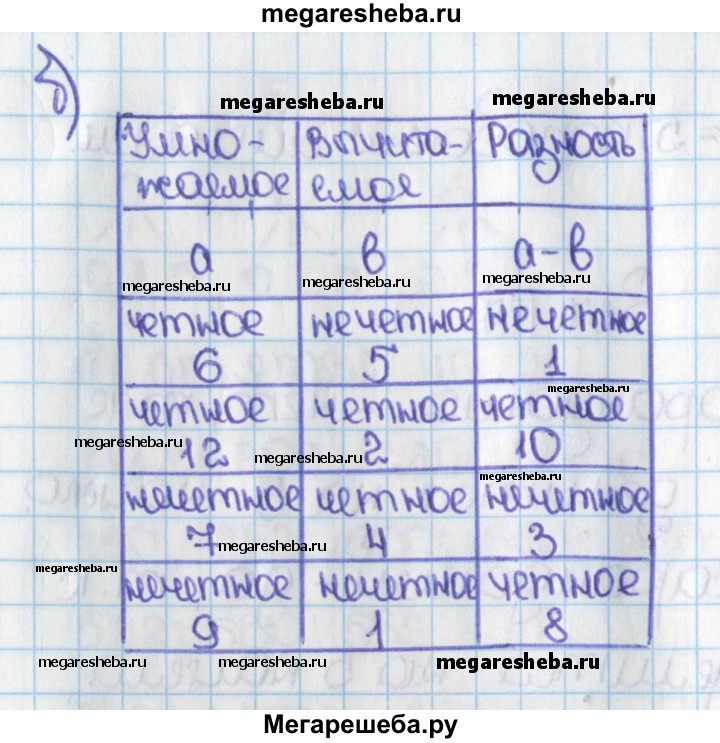 megaresheba.ru
б)
megaresheba.ru megaresheba.ru
Умно- Вычита- Разность
жаемое емое
а в а-в
megaresheba.ru megaresheba.ru megaresheba.ru
четное нечетное нечетное
6 5 1
megaresheba.ru
четное четное четное
megaresheba.ru 12 megaresheba.ru 2 10
megaresheba.ru
нечетное четное нечетное
7 megaresheba.ru 4 3
megaresheba.ru
нечетное нечетное четное
9 1 8
megaresheba.ru megaresheba.ru megaresheba.ru
Мегарешеба.ру